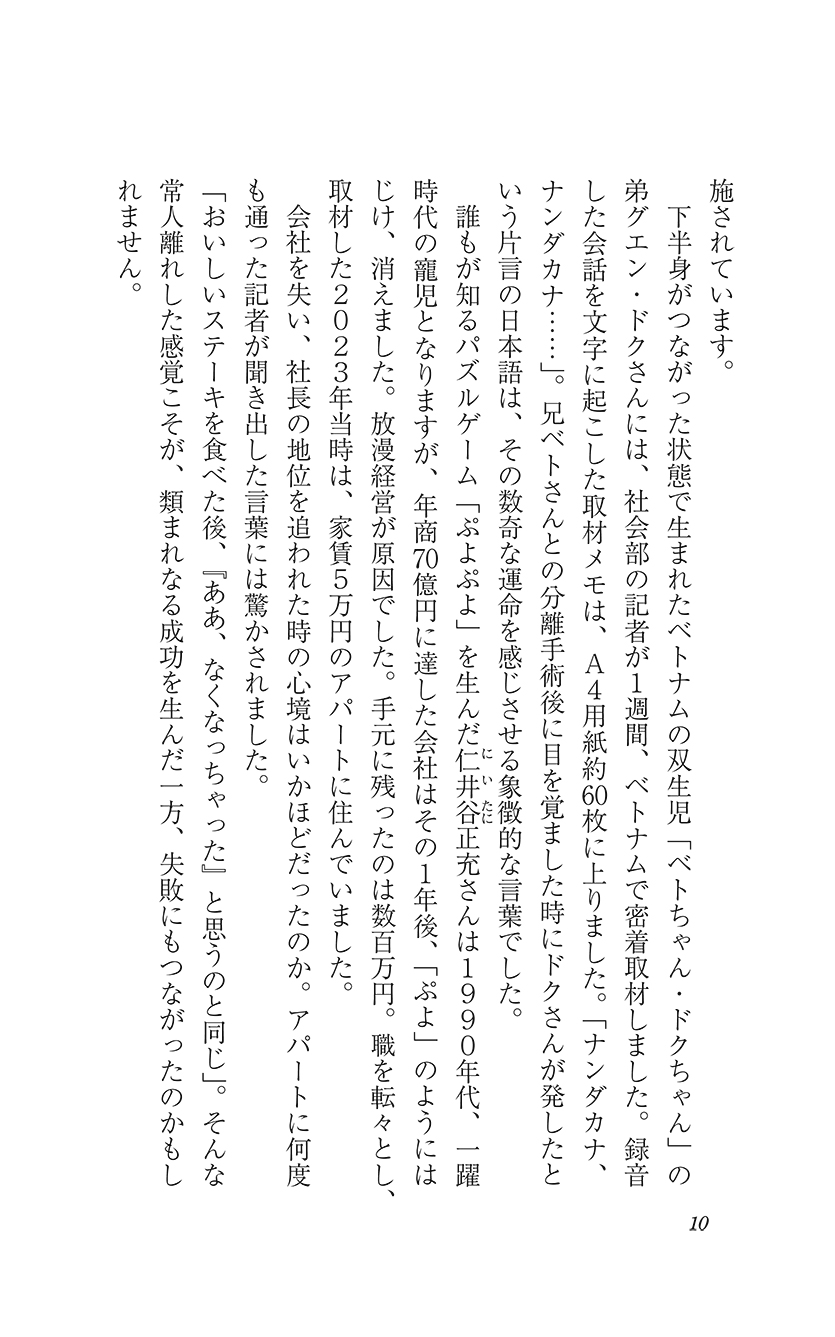 施されています。
　下半身がつながった状態で生まれたベトナムの双生児「ベトちゃん・ドクちゃん」の
弟グエン・ドクさんには、社会部の記者が1週間、ベトナムで密着取材しました。録音
した会話を文字に起こした取材メモは、A4用紙約60枚に上りました。「ナンダカナ、
ナンダカナ……」。兄ベトさんとの分離手術後に目を覚ました時にドクさんが発したと
いう片言の日本語は、その数奇な運命を感じさせる象徴的な言葉でした。
　誰もが知るパズルゲーム「ぷよぷよ」を生んだ仁井谷正充さんは1990年代、一躍
にいたに
時代の寵児となりますが、年商70億円に達した会社はその1年後、「ぷよ」のようには
じけ、消えました。放漫経営が原因でした。手元に残ったのは数百万円。職を転々とし、
取材した2023年当時は、家賃5万円のアパートに住んでいました。
　会社を失い、社長の地位を追われた時の心境はいかほどだったのか。アパートに何度
も通った記者が聞き出した言葉には驚かされました。
「おいしいステーキを食べた後、『ああ、なくなっちゃった』と思うのと同じ」。そんな
常人離れした感覚こそが、類まれなる成功を生んだ一方、失敗にもつながったのかもし
れません。
10